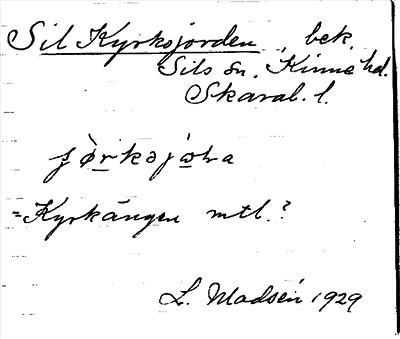 Sil Kyrksjorden, bek.
Sils sn. Kinne hd.
Skarab. l.
=Kyrkängen mtl.?
L. Madsén 1929